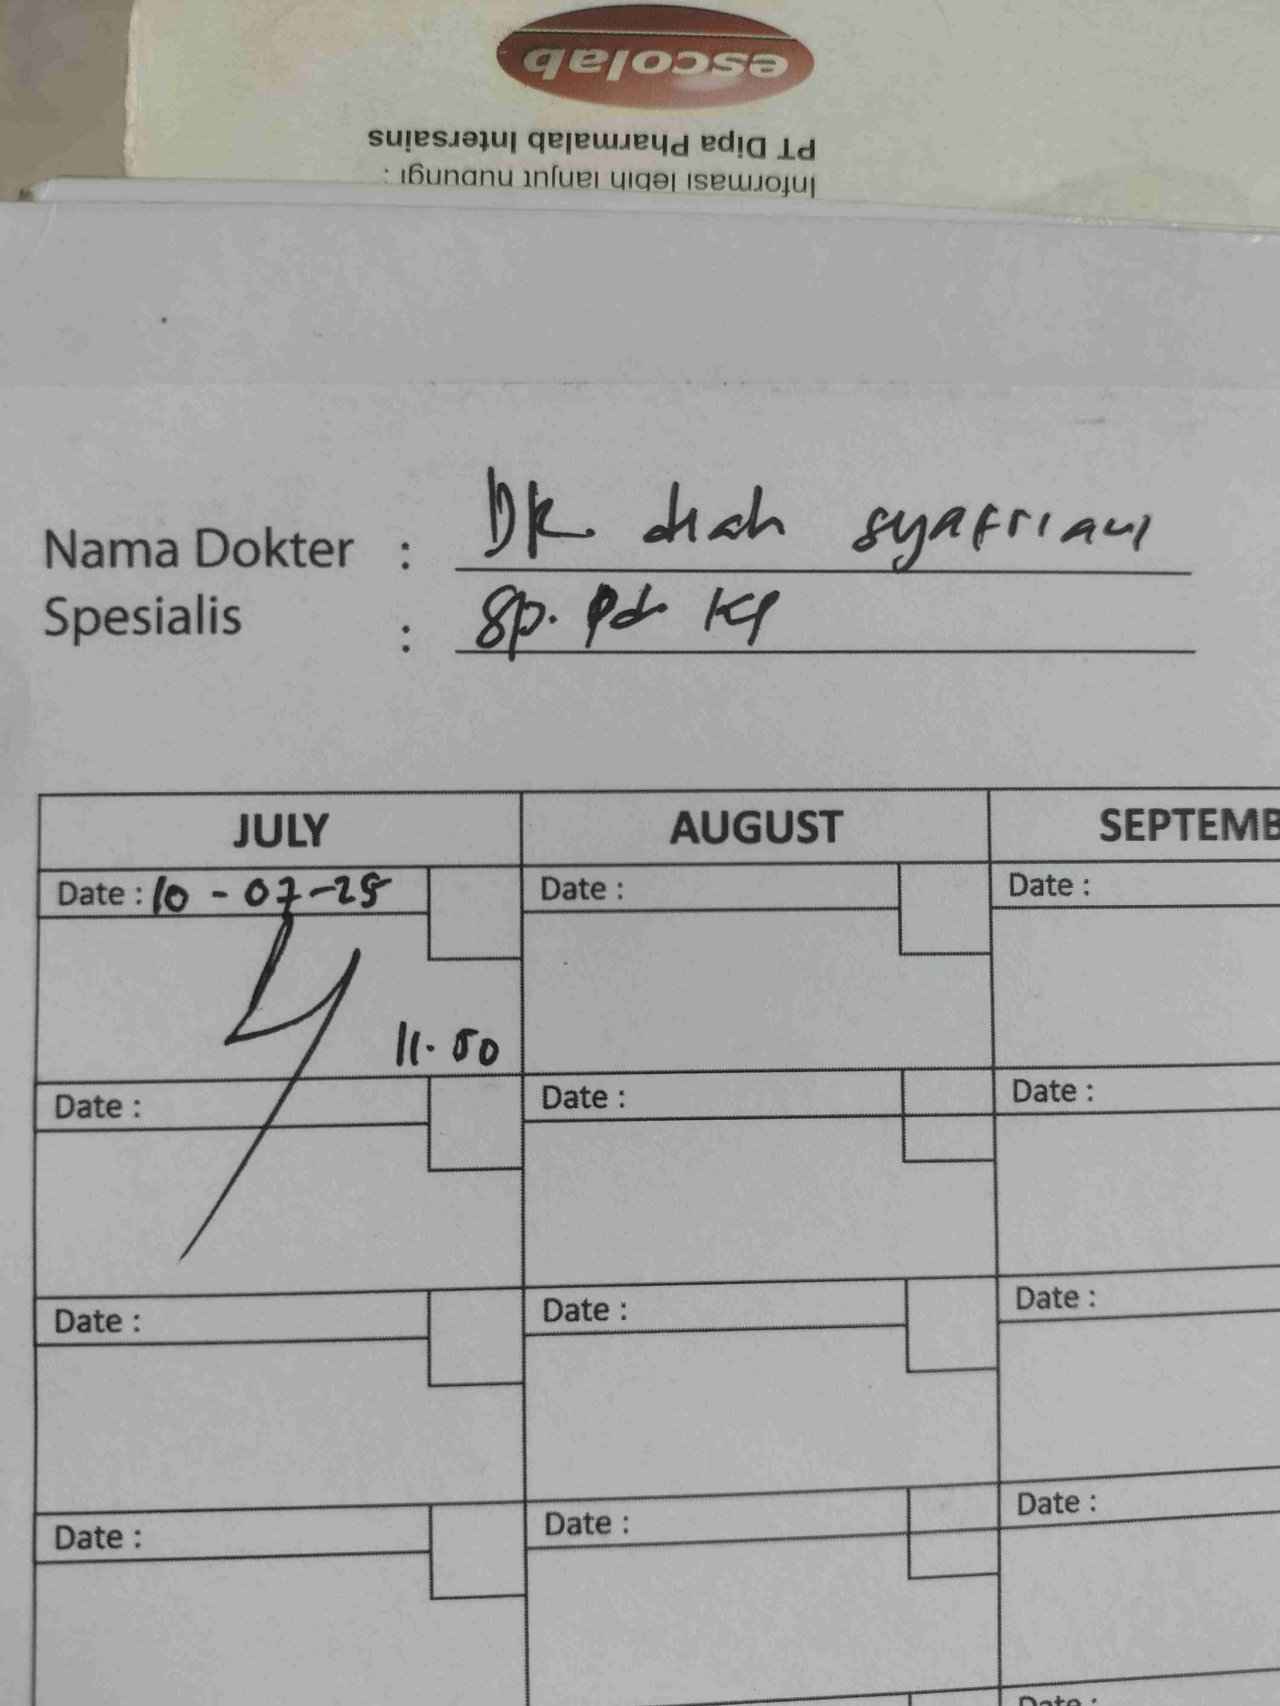 escolab
PT Dipa Pharmalab Intersains
Informasi lebih lanjut hubungi :
Nama Dokter : DR. diah syafriani
Spesialis : Sp. Pd KP
JULY AUGUST SEPTEMB
Date : 10 - 07-25 Date : Date :
11.50
Date : Date : Date :
Date : Date : Date :
Date : Date : Date :
Date :